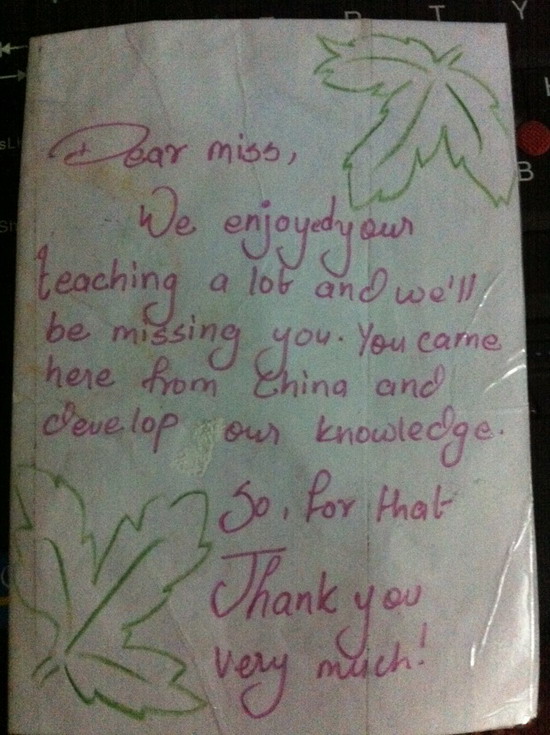 Dear miss,
We enjoyed your
teaching a lot and we'll
be missing you. You came
here from China and
develop our knowledge.
So, for that
Thank you
very much!